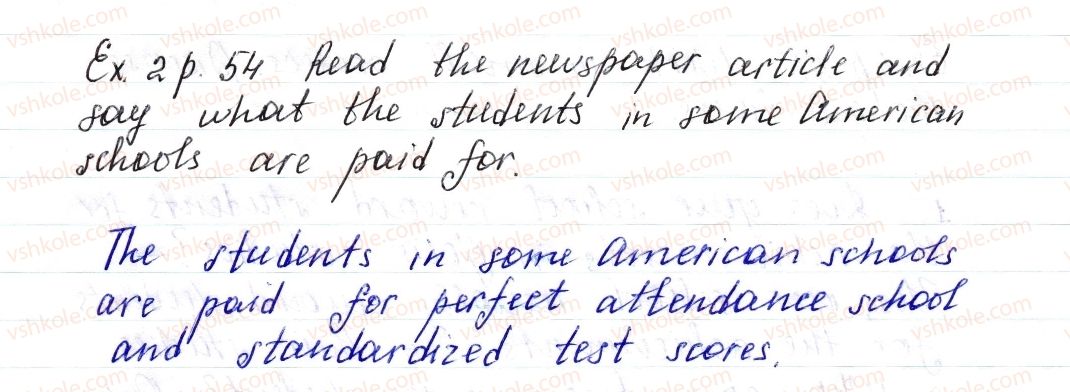 Ex. 2 p. 54 Read the newspaper article and
say what the students in some American
schools are paid for.
The students in some American schools
are paid for perfect attendance school
and standardized test scores.